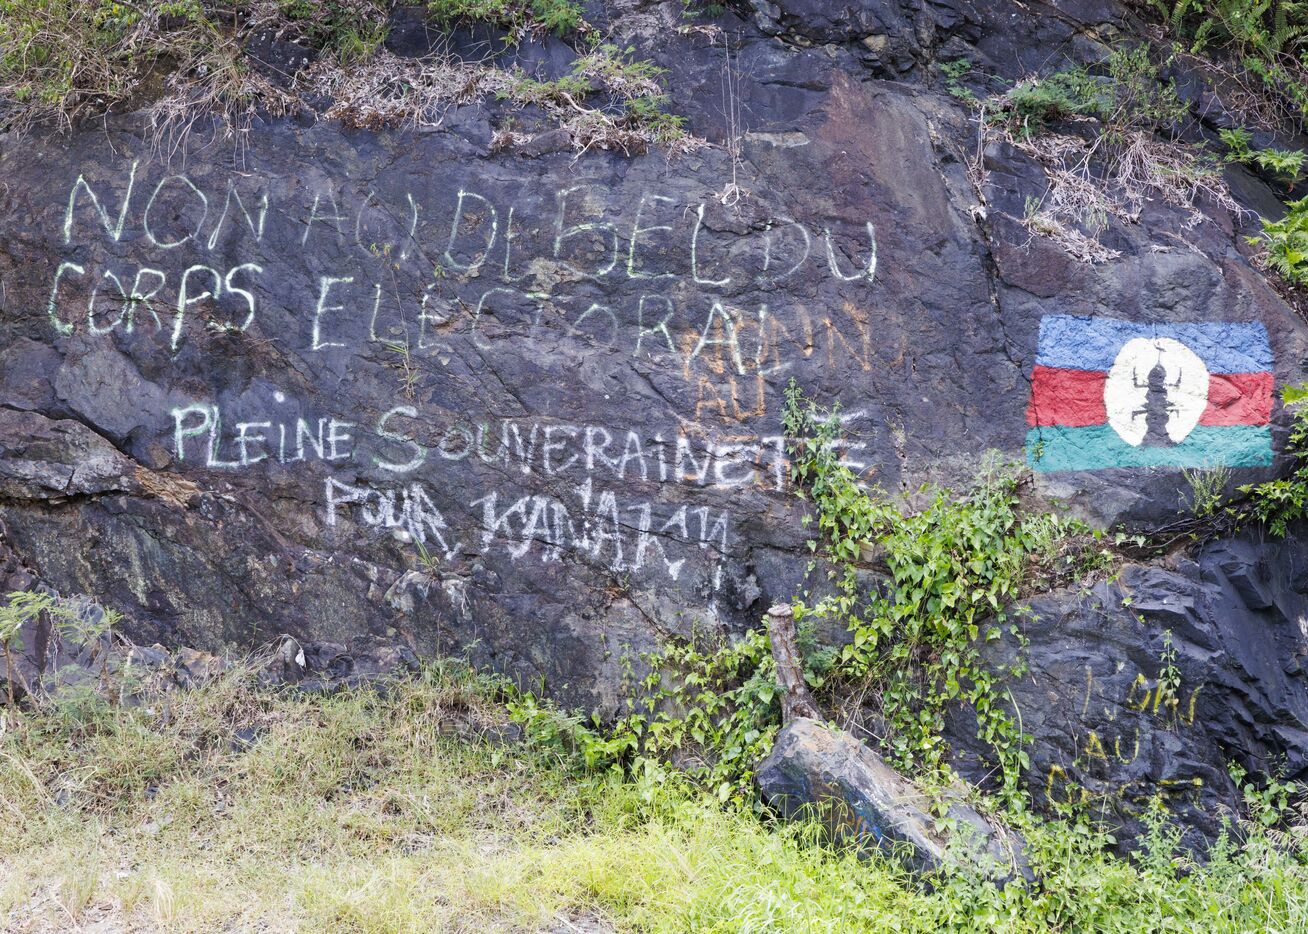 NON AU DEGEL DU
CORPS ELECTORAL
PLEINE SOUVERAINETÉ
POUR KANAKY
AU
AU